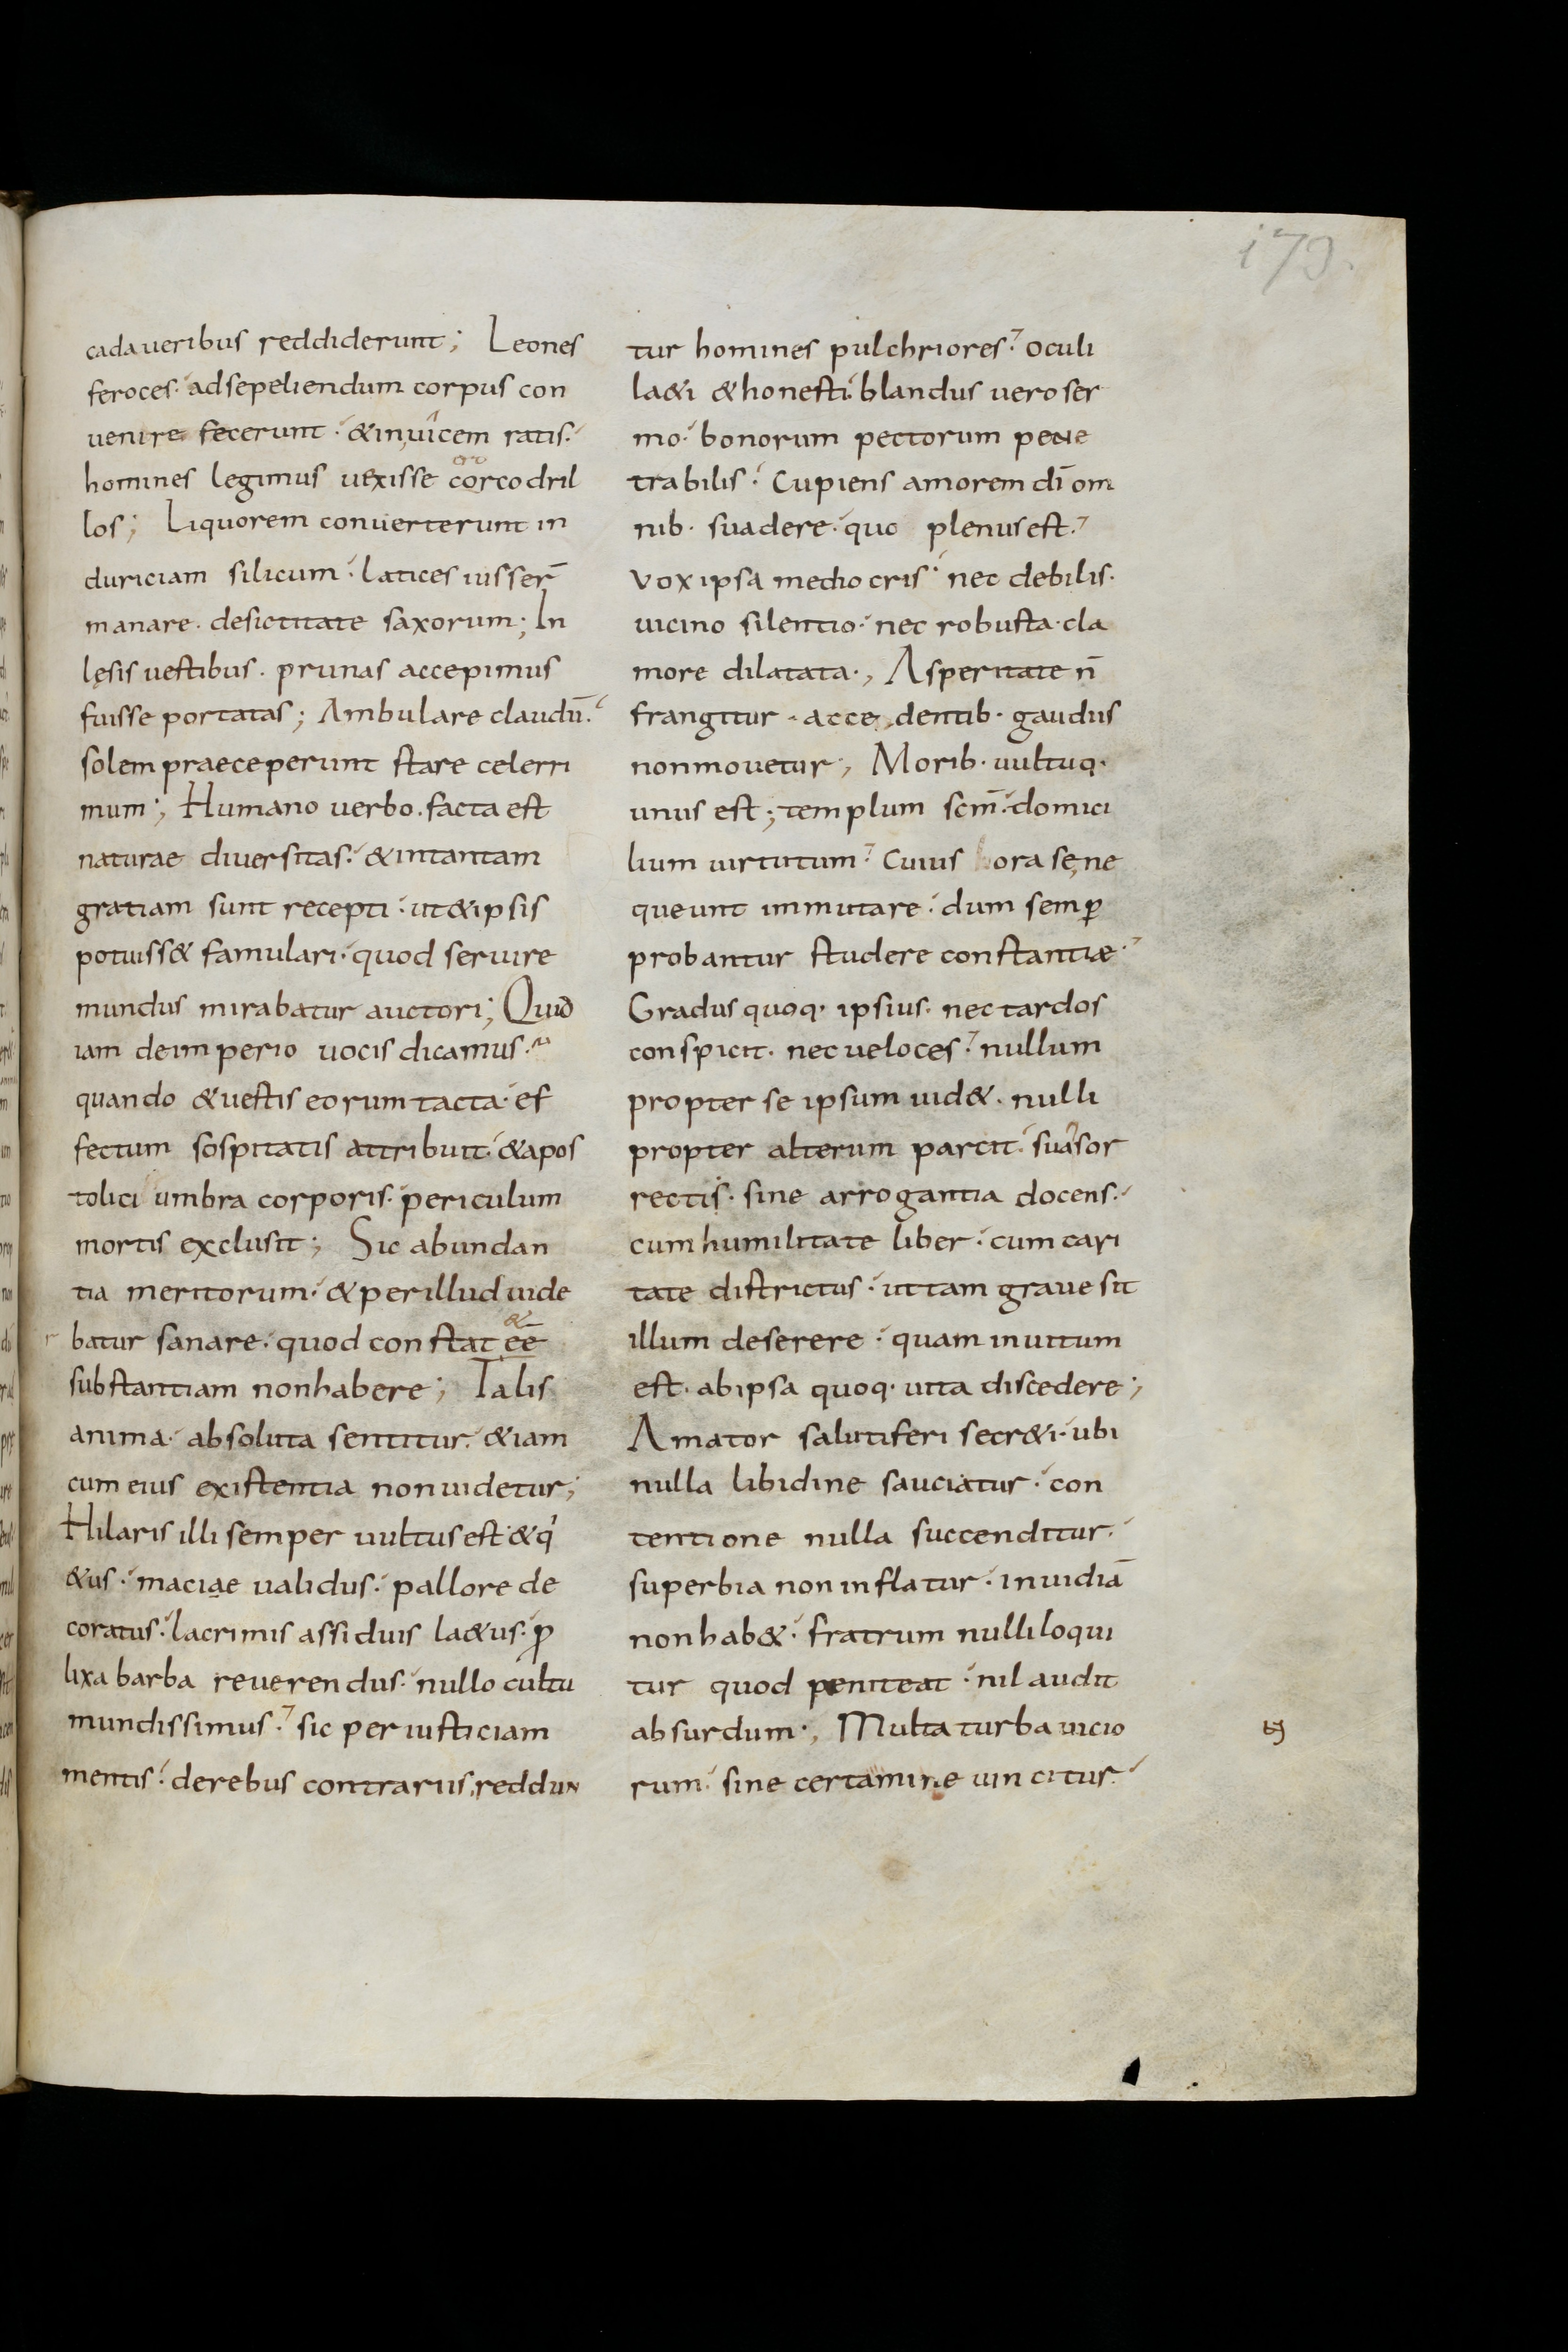 179.
cadaueribus reddiderunt; Leones
feroces· adsepeliendum corpus con
uenire fecerunt· &inuicem ratis·
homines legimus uexisse corcodril
los; Liquorem conuerterunt in
duriciam silicum· latices iusser̄
manare· desictitate saxorum; In
lęsis uestibus· prunas accepimus
fuisse portatas; Ambulare claudū·
solem praeceperunt stare celerri
mum; Humano uerbo· facta est
naturae diuersitas· &intantam
gratiam sunt recepti· ut&ipsis
potuiss& famulari· quod seruire
mundus mirabatur auctori; Quid
iam deimperio uocis dicamus·
quando &uestis eorum tacta· ef
fectum sospitatis attribuit· &apos
tolici umbra corporis· periculum
mortis exclusit; Sic abundan
tia meritorum· &perillud uide
batur sanare· quod constat ee̅
substantiam nonhabere; Talis
anima· absoluta sentitur· &iam
cum eius existentia nonuidetur;
Hilaris illi semper uultus est &q'
&us· maciae ualidus· pallore de
coratus· lacrimis assiduis la&us· ꝓ
lixa barba reuerendus· nullo cultu
mundissimus· sic per iusticiam
mentis· derebus contrariis, reddun
tur homines pulchriores· oculi
la&i &honesti· blandus uero ser
mo· bonorum pectorum pene
trabilis· Cupiens amorem dī om
nib· suadere· quo plenus est·
vox ipsa mediocris· nec debilis·
uicino silentio· nec robusta· cla
more dilatata·, Asperitate n̄
frangitur· acce,dentib· gaudiis
nonmouetur·, Morib· uultuq·
unus est·; templum scm̄· domici
lium uirtutum· Cuius ora se,ne
queunt immutare· dum semꝑ
probantur studere constantiæ·
Gradus quoq· ipsius· nec tardos
conspicit· nec ueloces· nullum
propter se ipsum uid&· nulli
propter alterum parcit· suasor
rectis· sine arrogantia docens·
cum humilitate liber· cum cari
tate districtus· ut tam graue sit
illum deserere· quam inuitum
est· abipsa quoq· uita discedere;
Amator salutiferi secr&i· ubi
nulla libidine sauciatur· con
tentione nulla succenditur·
superbia non inflatur· inuidiā
nonhab&· fratrum nulli loqui
tur quod peniteat· nil audit
absurdum·, Multa turba uicio
rum· sine certamine uincitur·